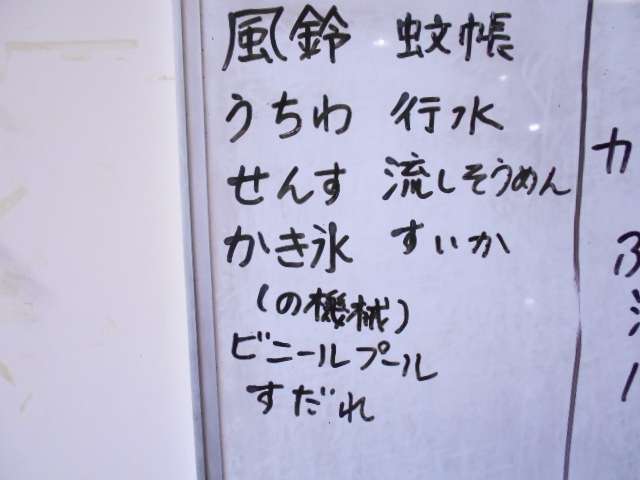 風鈴 蚊帳
うちわ 行水
せんす 流しそうめん
かき氷 すいか
(の機械)
ビニールプール
すだれ
カ